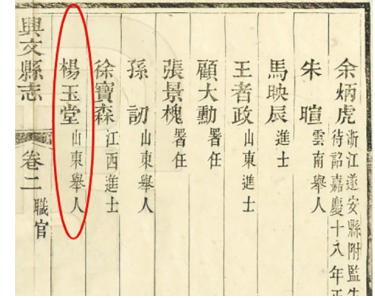 余炳虎 浙江遂安縣附監生
待詔嘉慶十八年正
朱暄 雲南舉人
馬映辰 進士
王者政 山東進士
顧大勳 署任
張景槐 署任
孫訒 山東舉人
徐寶森 江西進士
楊玉堂 山東舉人
興文縣志 卷二 職官